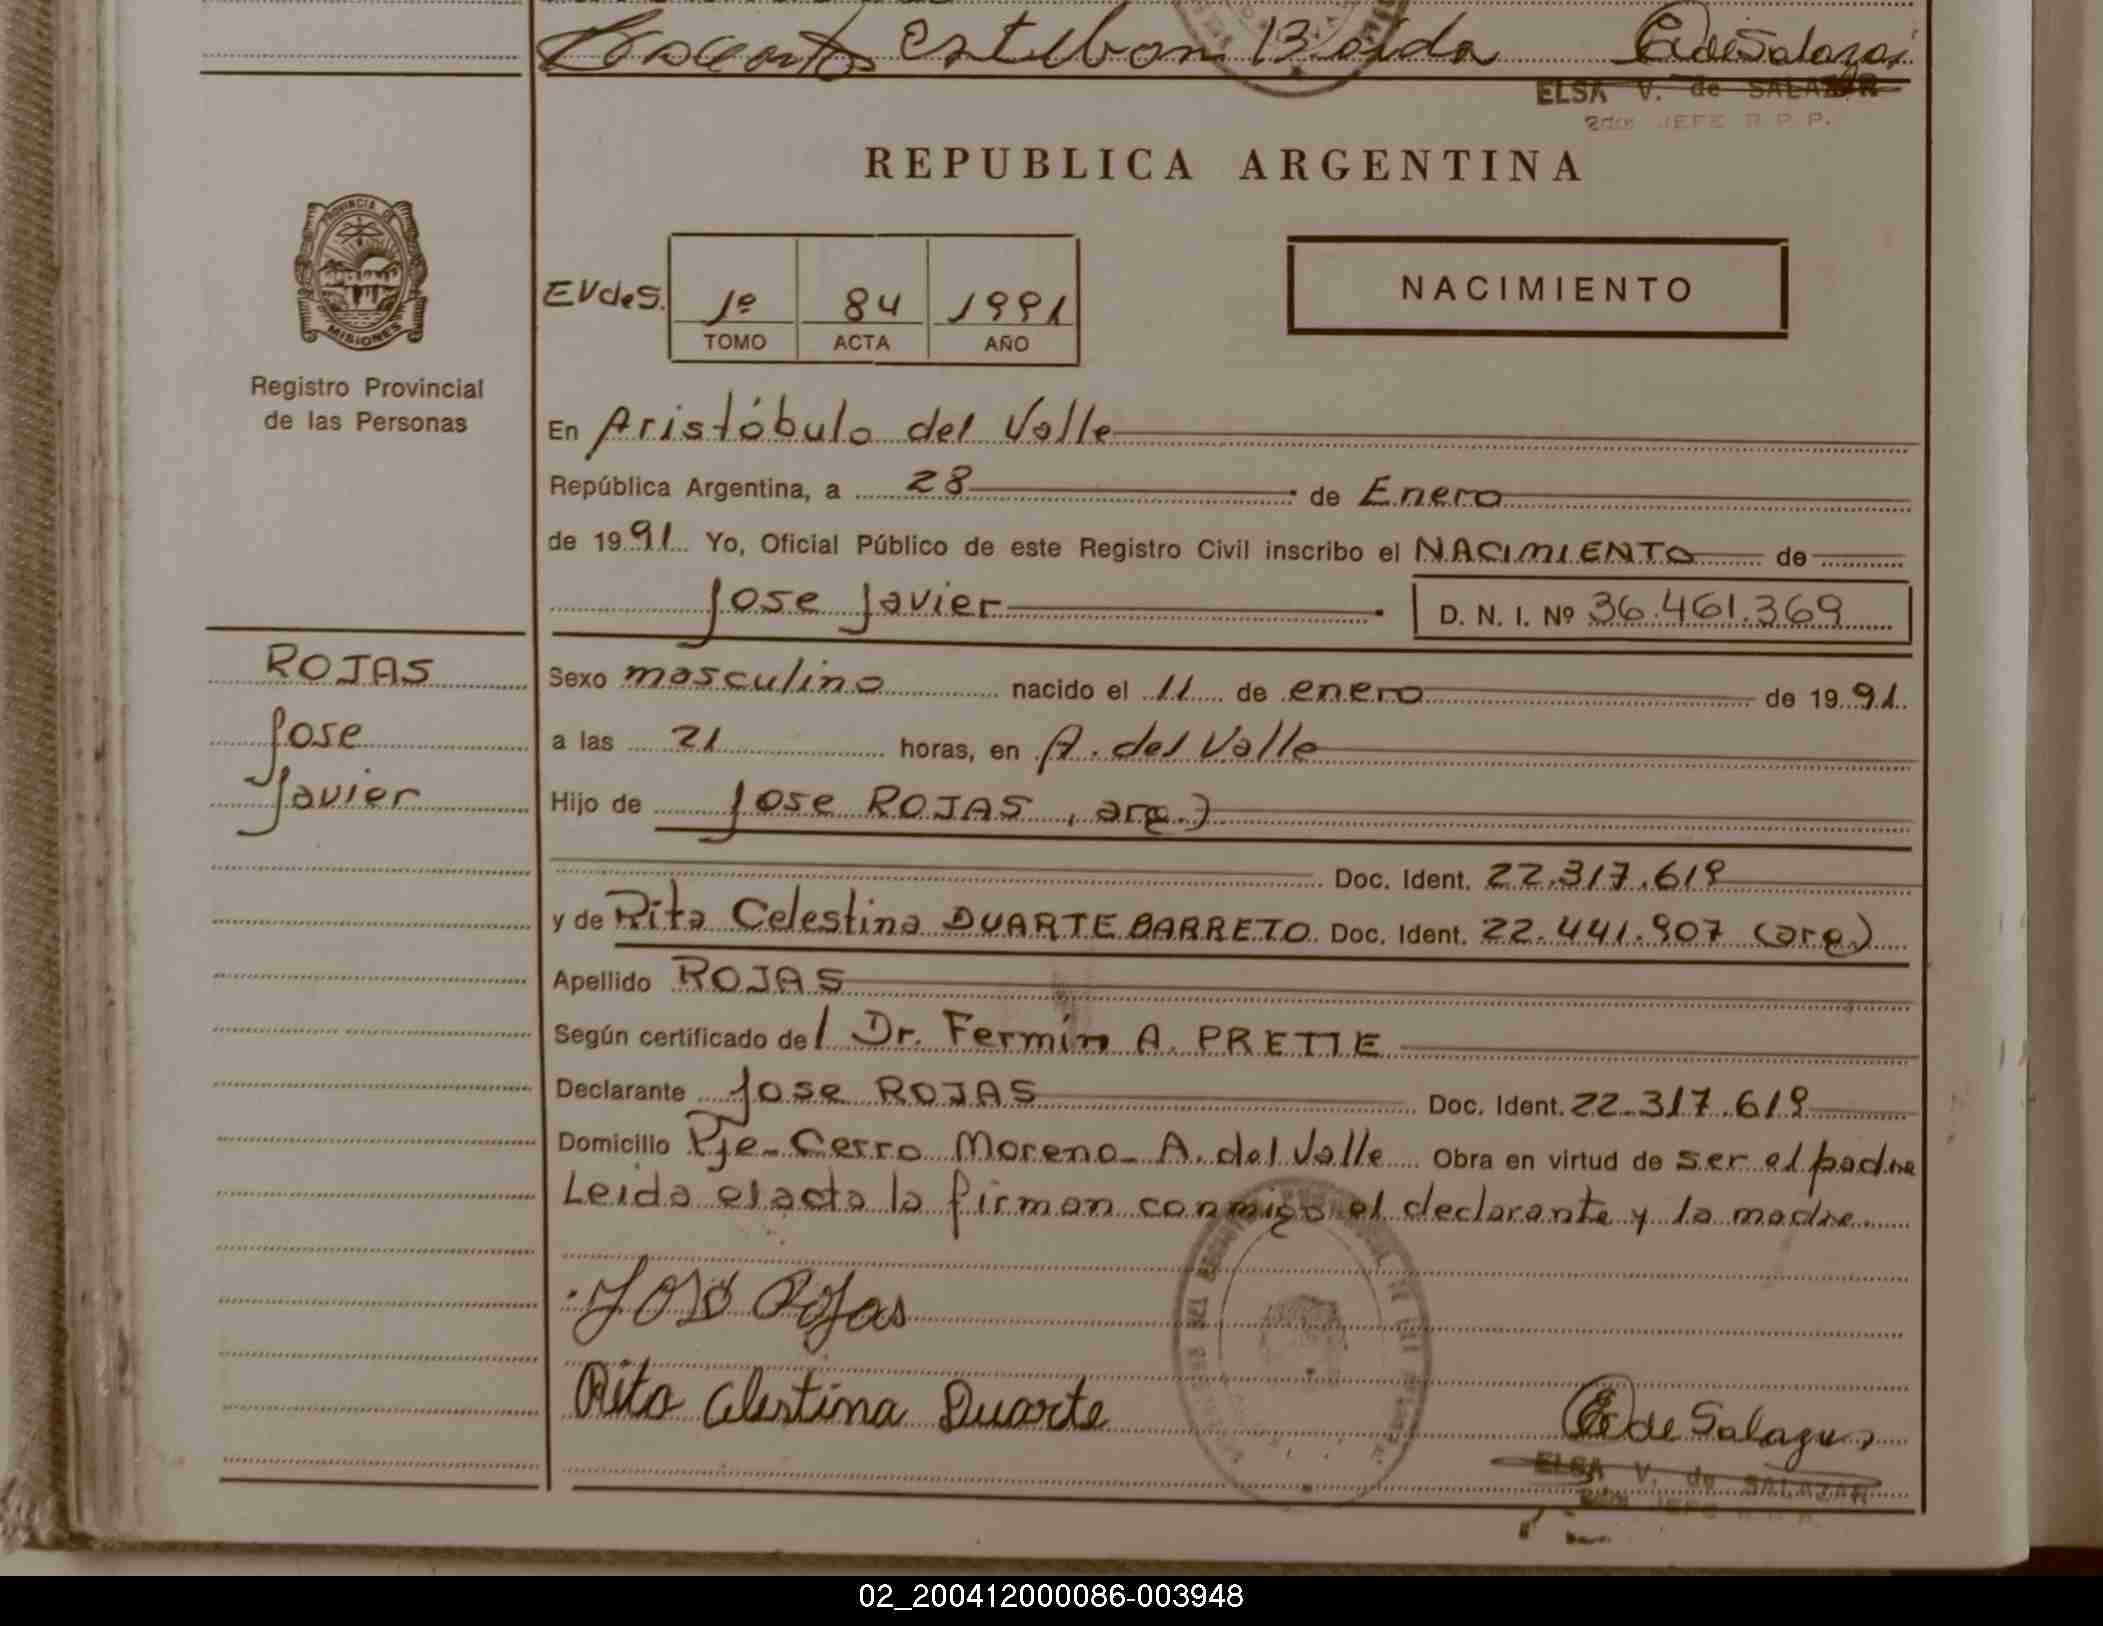 Esteban
ELSA V. de SALAZAR
2do JEFE R. P. P.
REPUBLICA ARGENTINA
PROVINCIA DE
MISIONES
Registro Provincial
de las Personas
EVdeS.
1º 84 1991
TOMO ACTA AÑO
NACIMIENTO
En Aristóbulo del Valle
República Argentina, a 28 de Enero
de 1991 Yo, Oficial Público de este Registro Civil inscribo el NACIMIENTO de
Jose Javier D. N. I. Nº 36.461.369
ROJAS
Jose
Javier
Sexo masculino nacido el 11 de enero de 1991.
a las 21 horas, en A. del Valle
Hijo de Jose ROJAS, arg.)
Doc. Ident. 22.317.619
y de Rita Celestina DUARTE BARRETO. Doc. Ident. 22.441.907 (arg.)
Apellido ROJAS
Según certificado del Dr. Fermín A. PRETTE
Declarante Jose ROJAS Doc. Ident. 22.317.619
Domicilio Pje. Cerro Moreno - A. del Valle Obra en virtud de ser el padre
Leida el acta la firman conmigo el declarante y la madre.
José Rojas
Rita Celestina Duarte
EVde Salazar
ELSA V. de SALAZAR
2do JEFE R. P. P.
02_200412000086-003948